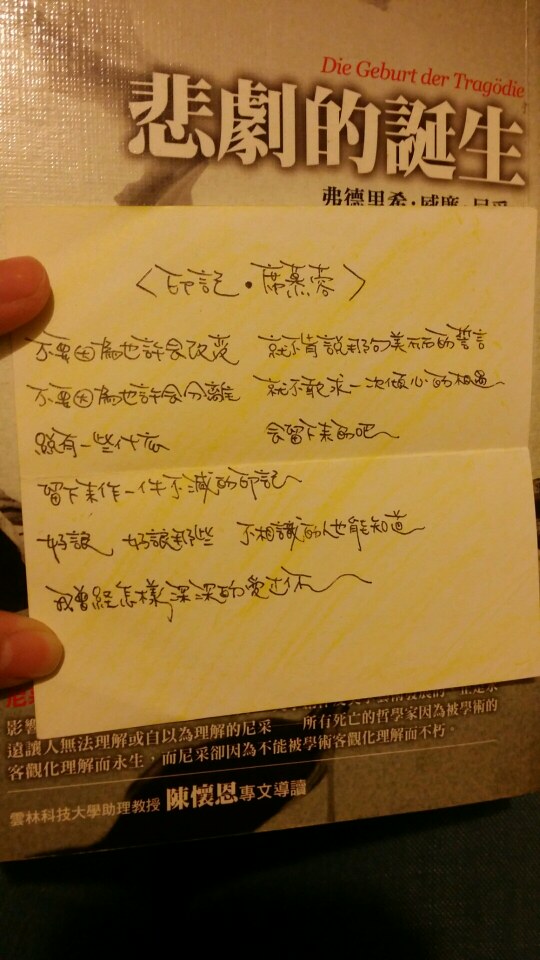 Die Geburt der Tragödie
悲劇的誕生
弗德里希·威廉·尼采
〈印記·席慕蓉〉
不要因為也許会改变 就不肯說那句美丽的誓言
不要因為也許会分離 就不敢求一次傾心的相遇
總有一些什麼 会留下來的吧
留下來作一件不滅的印記
好讓 好讓那些 不相識的人也能知道
我曾經怎樣深深的愛过你
影響
遠讓人無法理解或自以為理解的尼采——所有死亡的哲學家因為被學術的
客觀化理解而永生，而尼采卻因為不能被學術客觀化理解而不朽。
雲林科技大學助理教授 陳懷恩 專文導讀